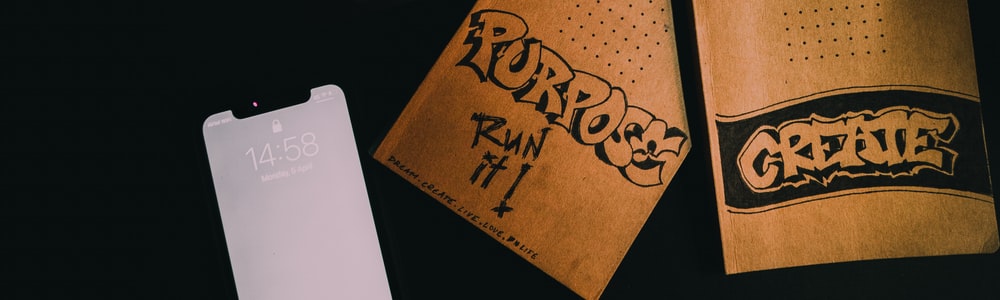 14:58
Monday, 6 April
PURPOSE
RUN
it!
DREAM. CREATE. LIVE. LOVE.
CREATE